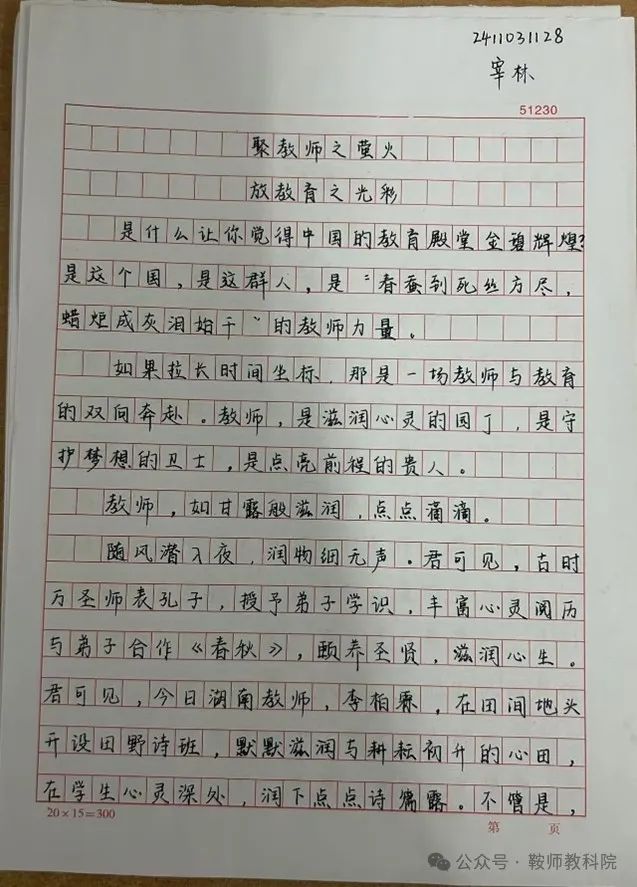 2411031128
宰林
51230
聚教师之萤火
放教育之光彩
是什么让你觉得中国的教育殿堂金碧辉煌?
是这个国，是这群人，是“春蚕到死丝方尽，
蜡炬成灰泪始干”的教师力量。
如果拉长时间坐标，那是一场教师与教育
的双向奔赴。教师，是滋润心灵的园丁，是守
护梦想的卫士，是点亮前程的贵人。
教师，如甘露般滋润，点点滴滴。
随风潜入夜，润物细无声。君可见，古时
万圣师表孔子，授予弟子学识，丰富心灵阅历
与弟子合作《春秋》，颐养圣贤，滋润心生。
君可见，今日湖南教师，李柏霖，在田间地头
开设田野诗班，默默滋润与耕耘初升的心田，
在学生心灵深处，润下点点诗篇露。不管是，
20×15=300
第 页
公众号·鞍师教科院